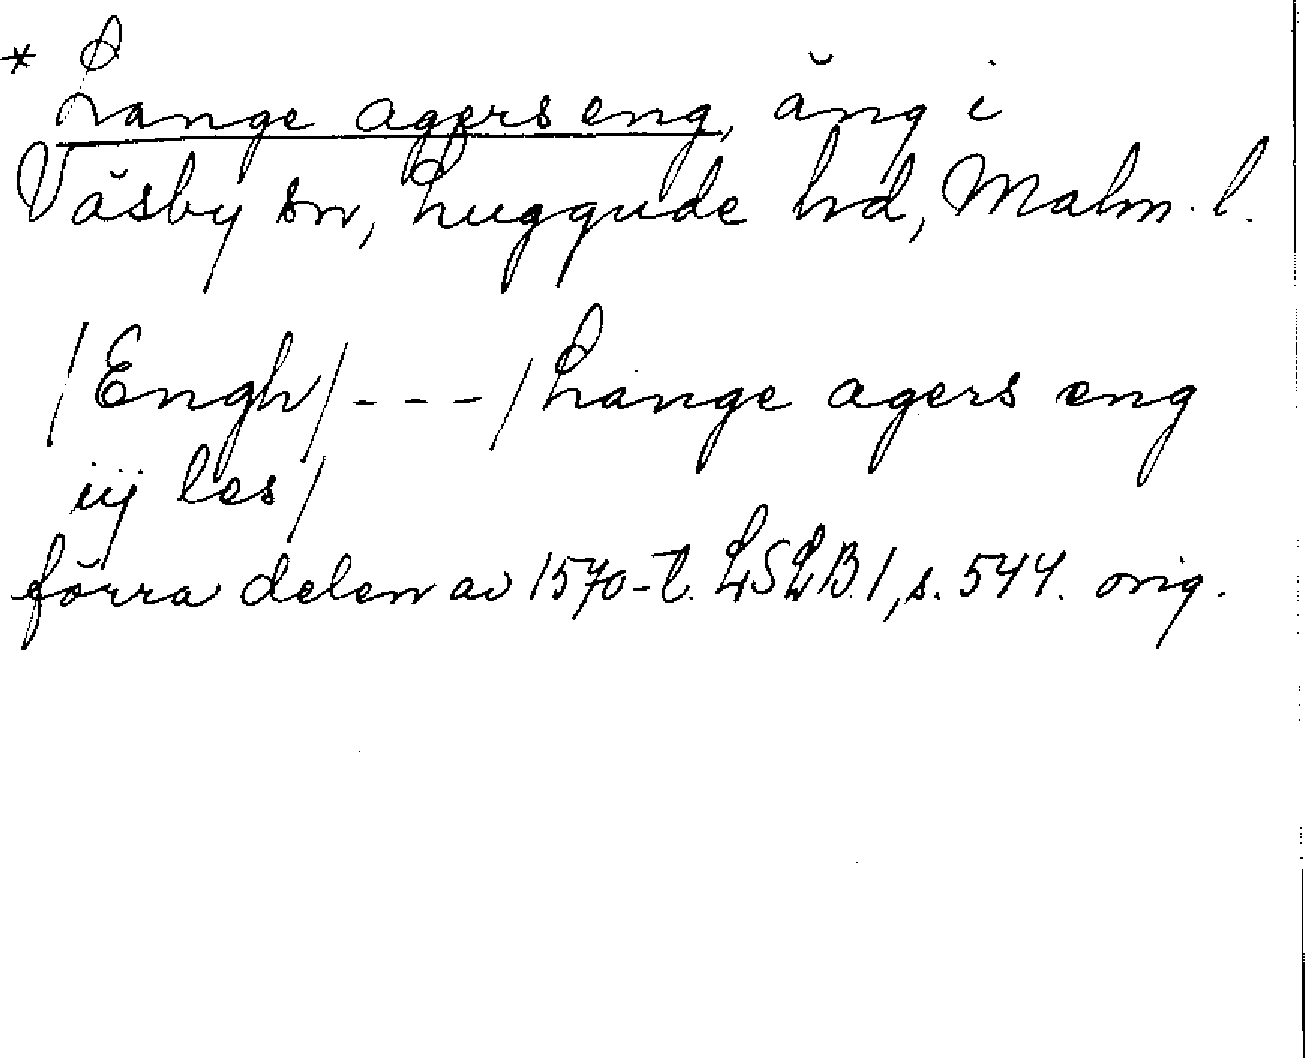 * Lange agers eng, äng i
Väsby sn, Luggude hd, Malm. l.
/Engh/ - - - /Lange agers eng
iij les/
förra delen av 1570-t. LSLB.1, s. 544. orig.